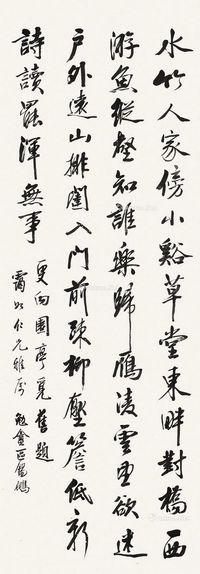 水竹人家傍小谿草堂東畔對橋西
游魚縱壑知誰樂歸雁凌雲望欲迷
戶外遠山排闥入門前疎柳壓簷低新
詩讀罷渾無事
更向園亭覓舊題
仁兄雅屬 勉盦